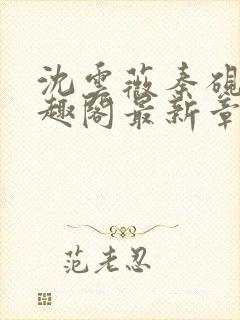 沈云薇秦砚
趣阁最新章
范老忍